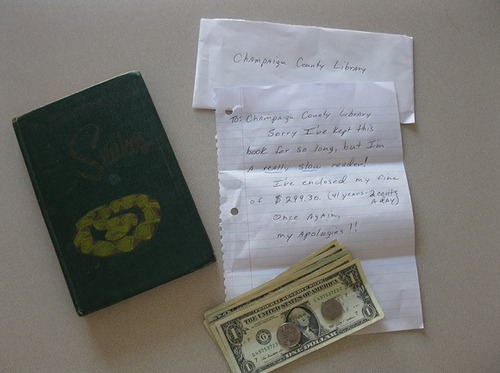 Champaign County Library
To: Champaign County Library
Sorry I've kept this
book for so long, but I'm
a really slow reader!
I've enclosed my fine
of $299.30. (41 years - 2 cents
a day)
Once Again,
my Apologies!!
Snakes
FEDERAL RESERVE NOTE
THE UNITED STATES OF AMERICA
ONE DOLLAR